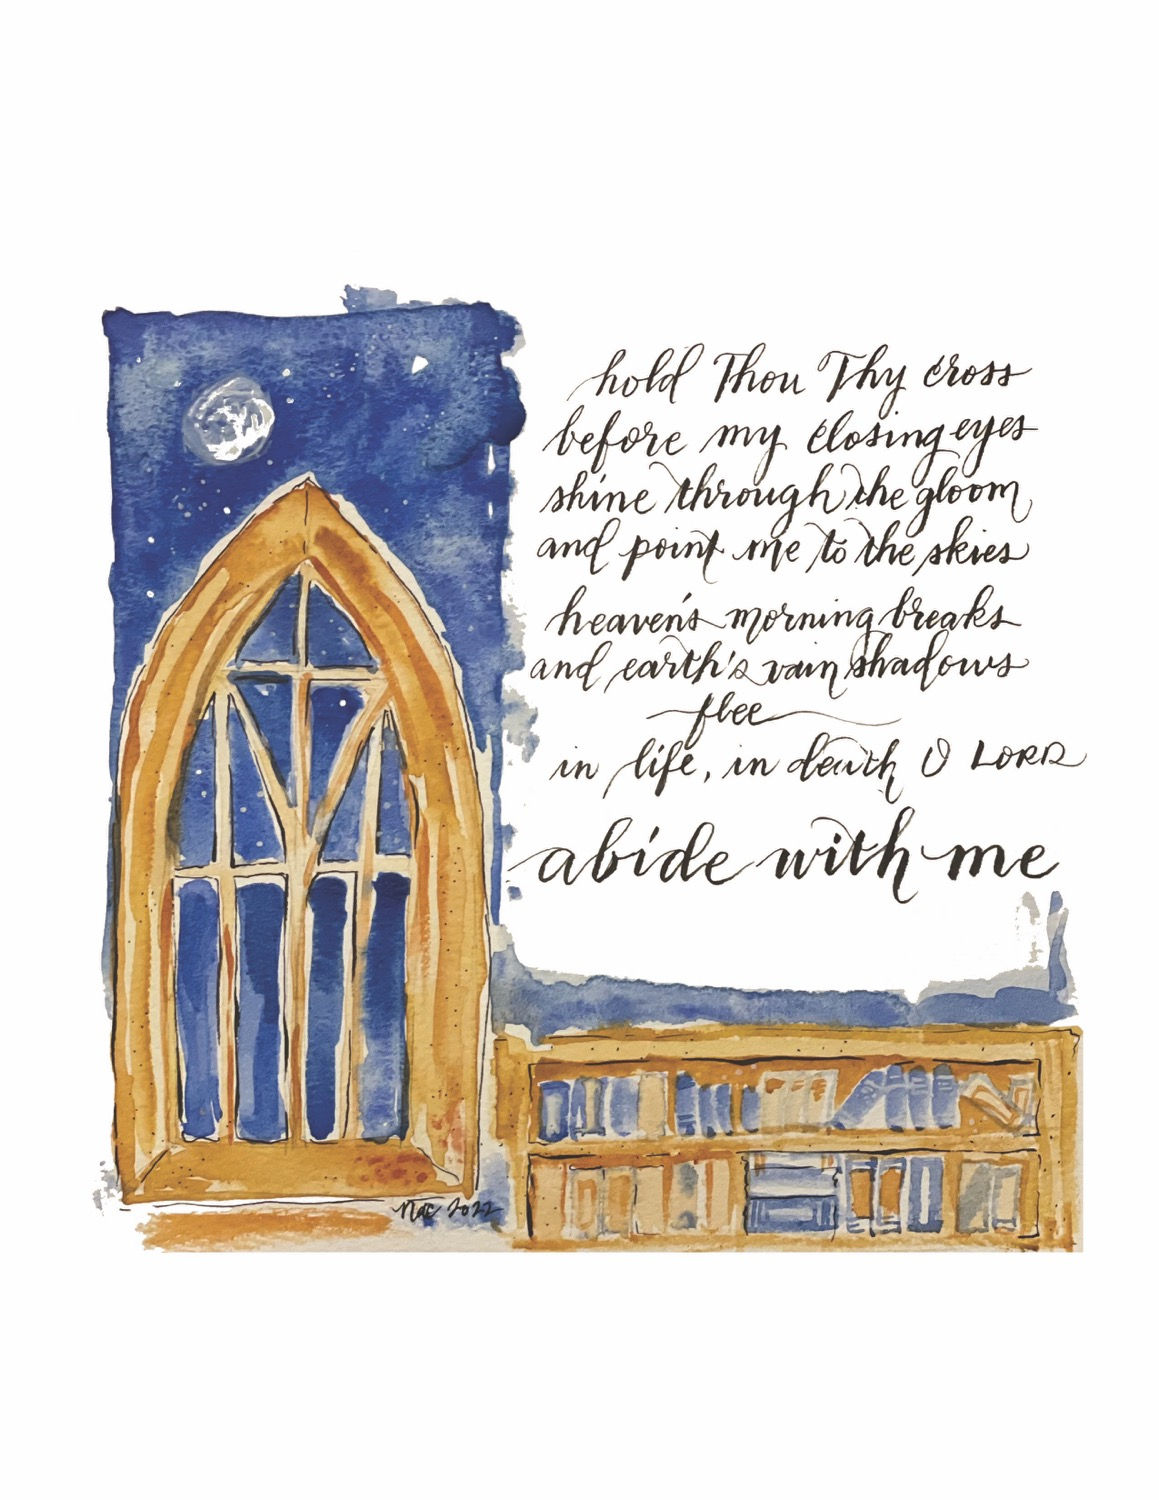 hold Thou Thy cross
before my closing eyes
shine through the gloom
and point me to the skies
heaven's morning breaks
and earth's vain shadows
flee
in life, in death O LORD
abide with me
2022